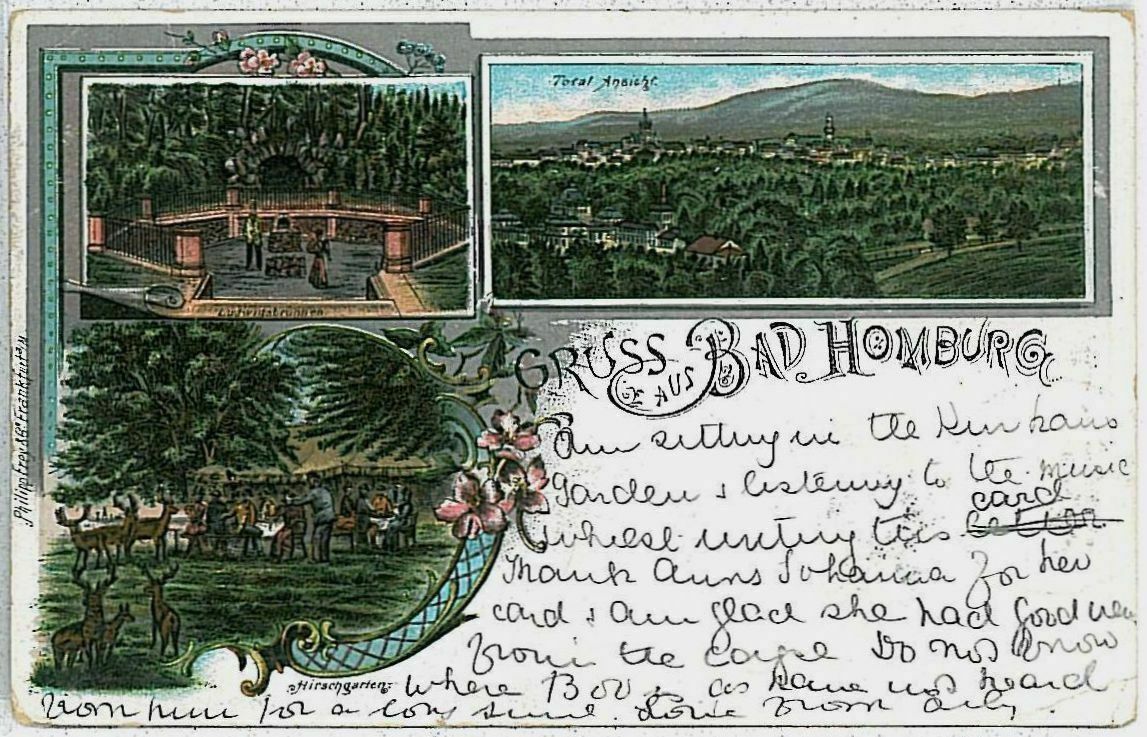 Total Ansicht.
Ludwigsbrunnen
Philipp Frey & Co. Frankfurt a/M
GRUSS AUS BAD HOMBURG
Hirschgarten
Am sitting in the Kurhaus
Garden & listening to the music
whilst writing this card
Thank Johanna for her
card & am glad she had good news
from the Cape Do not know
where Bob is as have not heard
from him for a long time. Love from